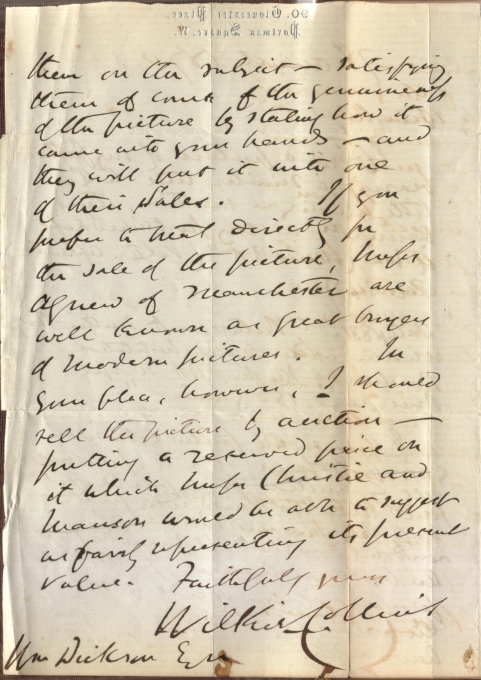 90. Gloucester Place,
Portman Square. W.
them on the subject — satisfying
them of course of the genuineness
of the picture by stating how it
came into your hands — and
they will put it into one
of their Sales. If you
prefer to treat directly for
the sale of the picture, Messrs
Agnew of Manchester are
well known as great buyers
of modern pictures. In
your place, however, I should
sell the picture by auction —
putting a reserved price on
it which Messrs Christie and
Manson would be able to suggest
as fairly representing its present
value. Faithfully yours
Wilkie Collins
Wm Dickson Esqre